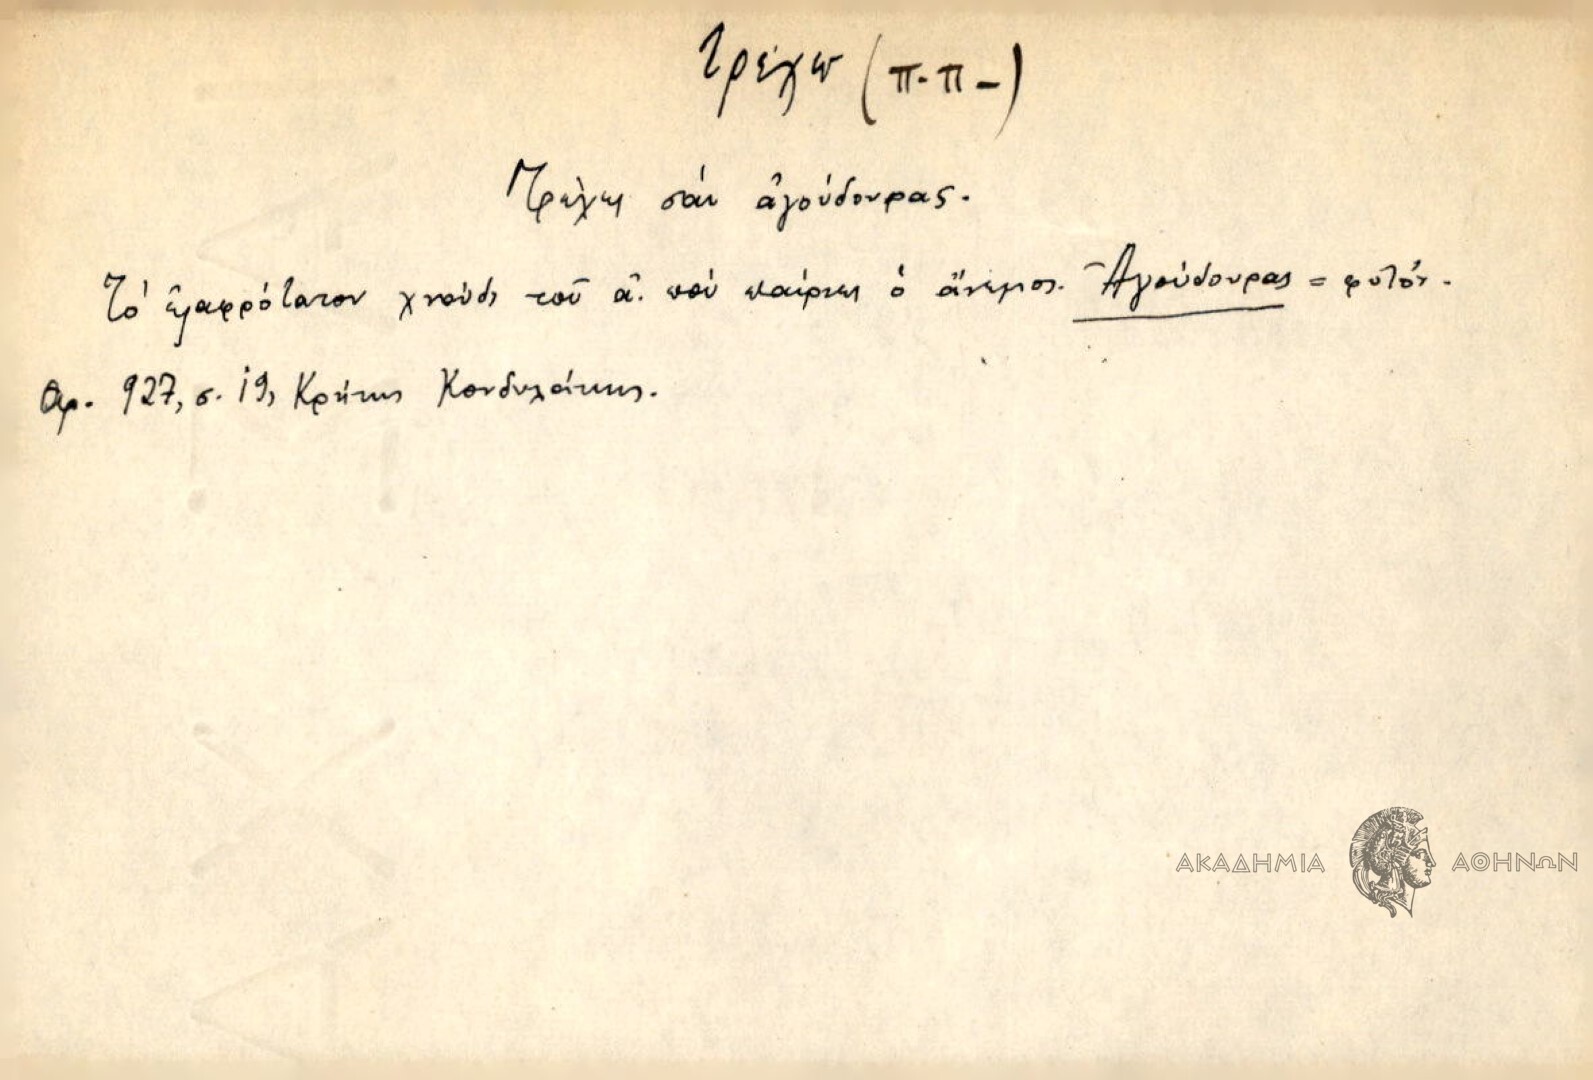 τρέχω (π.π-)
Τρέχει σάν ἀγούδουρας.
Τό ἐλαφρότατον χνούδι τοῦ ἀ. πού παίρνει ὁ ἄνεμος. Ἀγούδουρας = φυτόν.
Αρ. 927, σ. 19, Κρήτης Κονδυλάκης.
ΑΚΑΔΗΜΙΑ ΑΘΗΝΩΝ